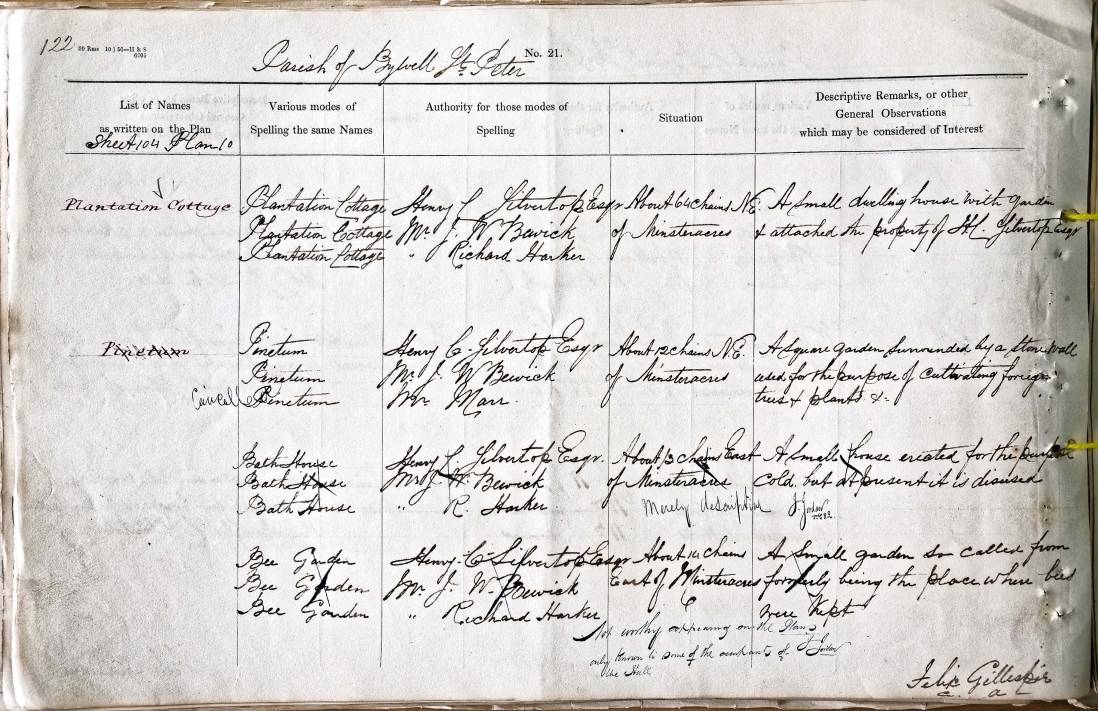 122
Parish of Bywell St. Peter
No. 21.
List of Names as written on the Plan
Various modes of Spelling the same Names
Authority for those modes of Spelling
Situation
Descriptive Remarks, or other General Observations which may be considered of Interest
Sheet 104 Plan 10
Plantation Cottage
Plantation Cottage Henry C. Silvertop Esqr About 64 chains N.E. A small dwelling house with garden
Plantation Cottage Mr. J. W. Bewick of Minsteracres & attached the property of H.C. Silvertop Esqr
Plantation Cottage " Richard Harker
Pinetum
Pinetum Henry C. Silvertop Esqr About 12 chains N.E. A Square garden surrounded by a stone wall
Pinetum Mr. J. W Bewick of Minsteracres used for the purpose of cultivating foreign
Pinetum Mr. Marr. trees & plants &c
Bath House Henry C. Silvertop Esqr. About 13 chains East A small house erected for the purpose
Bath House Mr J. W. Bewick of Minsteracres Cold. but at present it is disused
Bath House " R. Harker
Merely descriptive
Bee Garden Henry C Silvertop Esqr About 14 chains A small garden so called from
Bee Garden Mr. J. W. Bewick East of Minsteracres formerly being the place where bees
Bee Garden " Richard Harker were kept
Not worthy appearing on the Plans
only known to some of the occupants of
the Hall
Felix Gillespie
C. a L